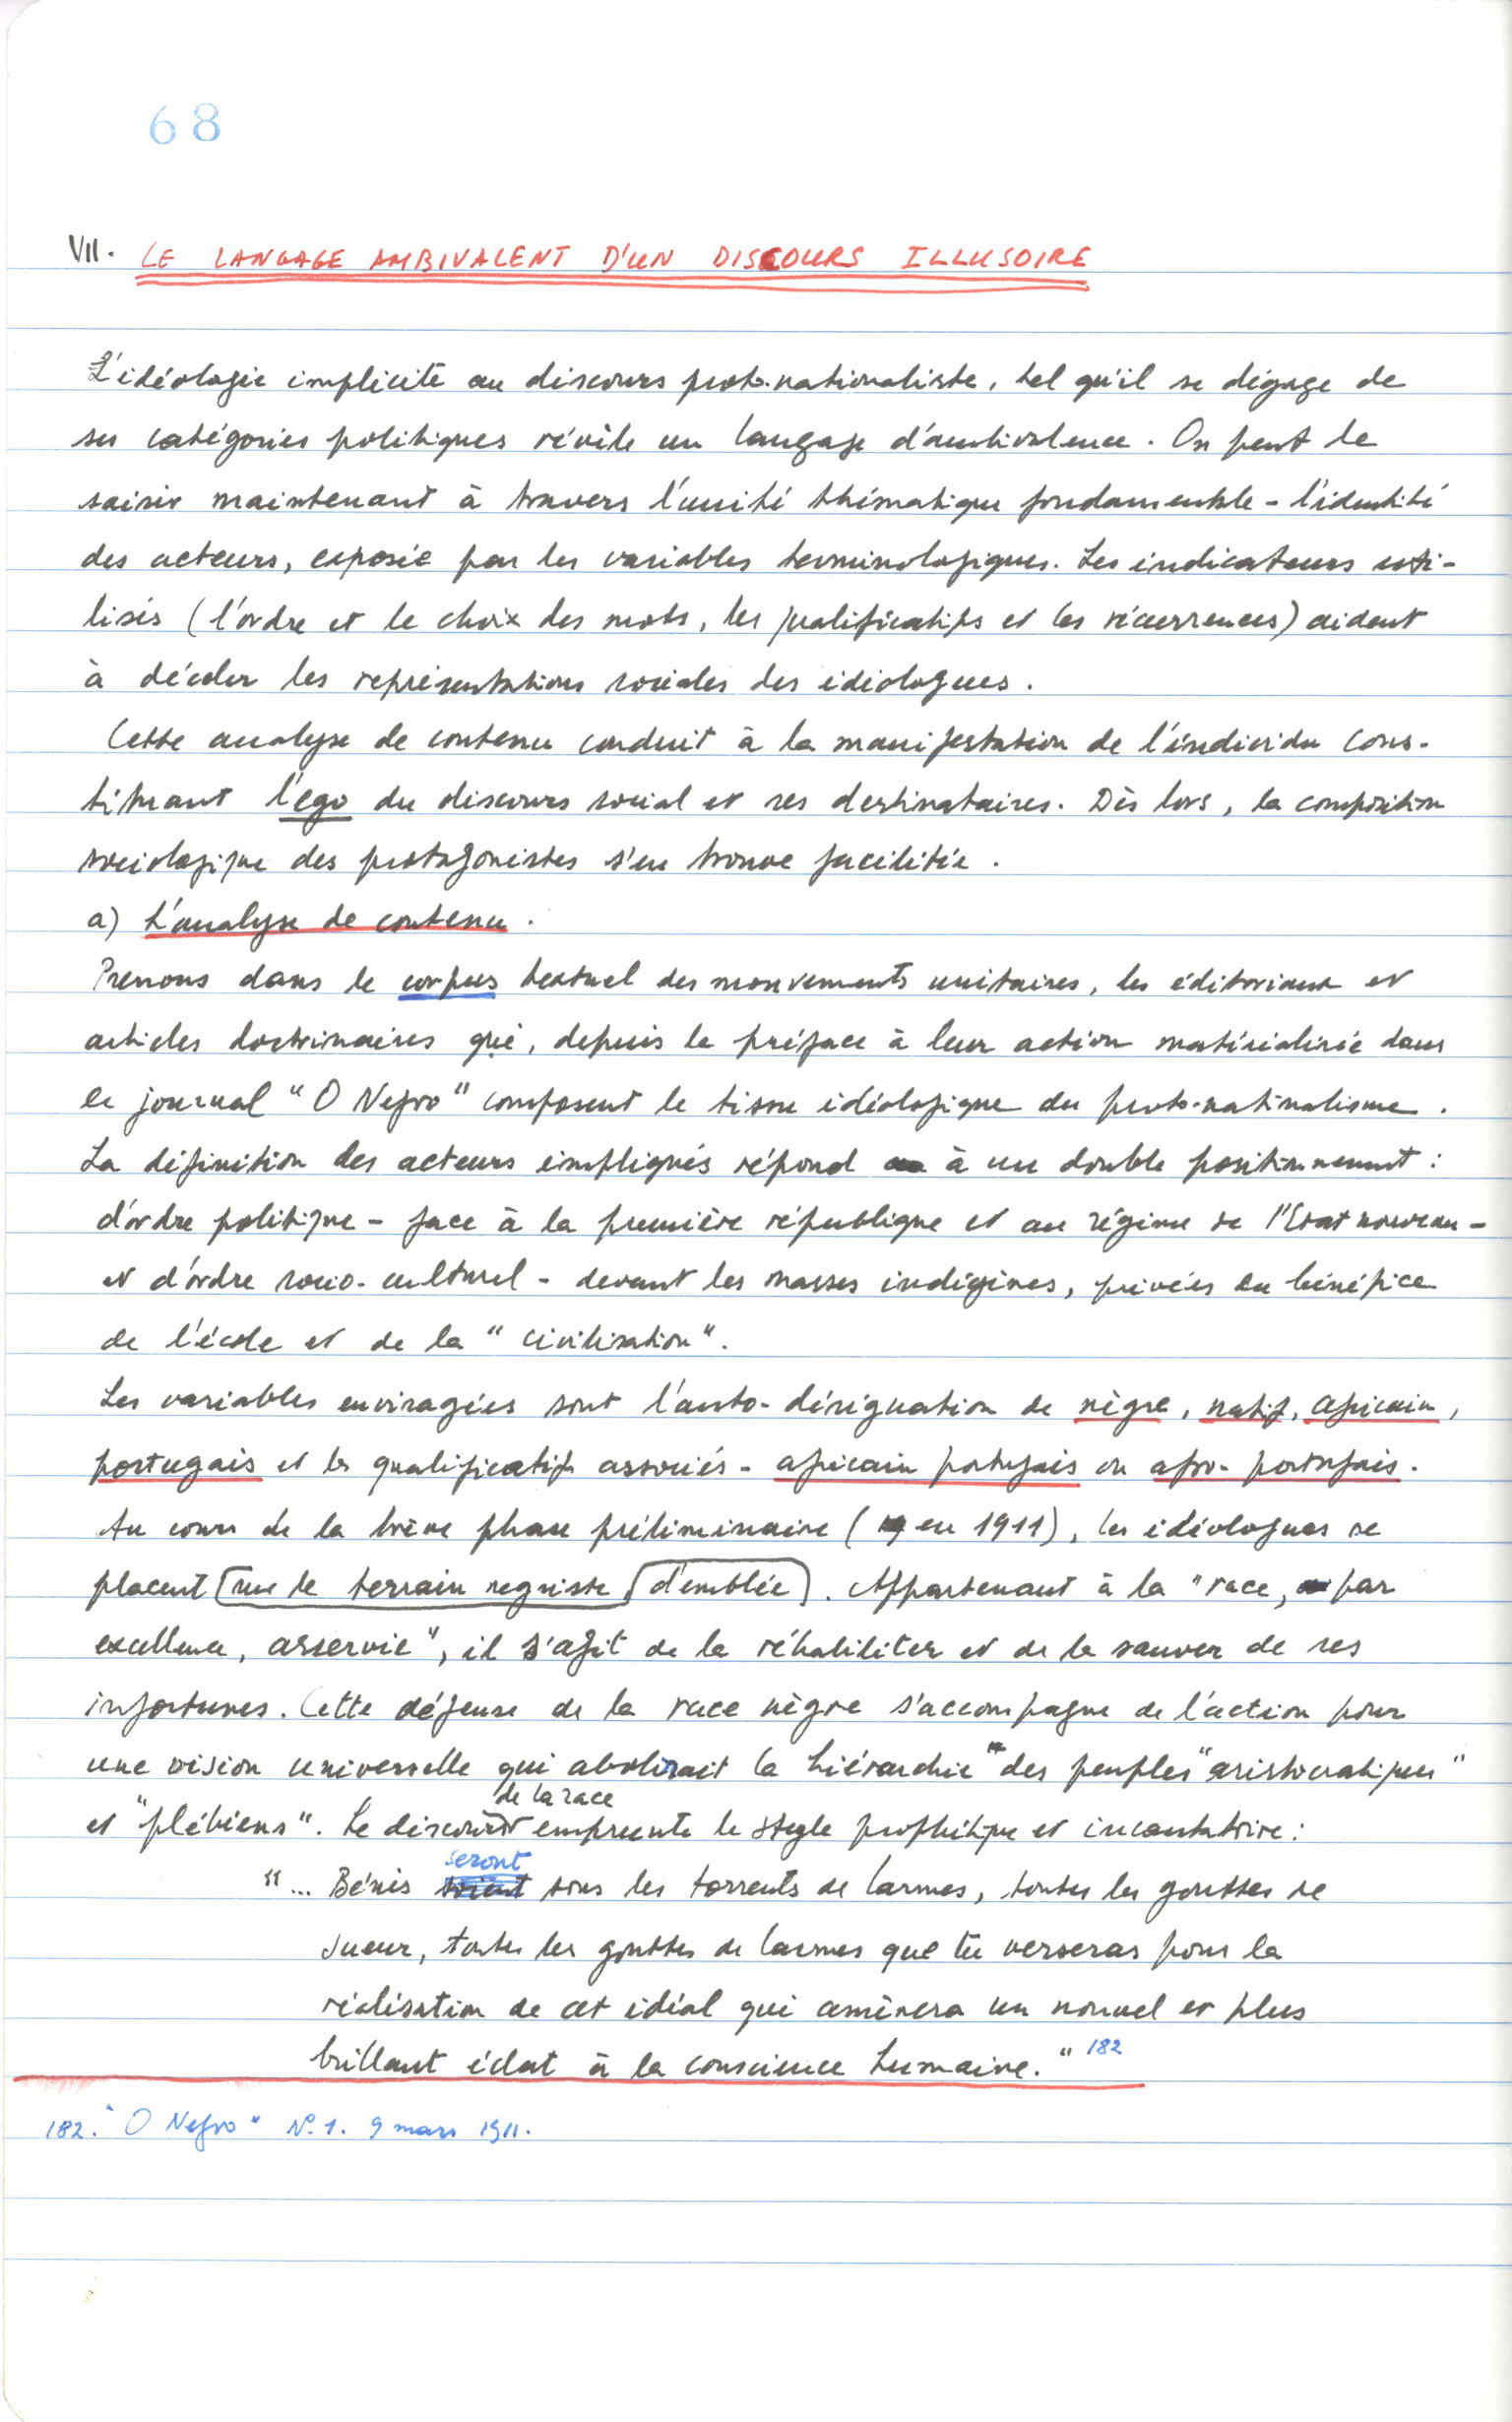 68
VII. LE LANGAGE AMBIVALENT D'UN DISCOURS ILLUSOIRE
L'idéologie implicite au discours proto-nationaliste, tel qu'il se dégage de
ses catégories politiques révèle un langage d'ambivalence. On peut le
saisir maintenant à travers l'unité thématique fondamentale - l'identité
des acteurs, exposée par les variables terminologiques. Les indicateurs uti-
lisés (l'ordre et le choix des mots, les qualificatifs et les récurrences) aident
à décoder les représentations sociales des idéologues.
Cette analyse de contenu conduit à la manifestation de l'individu cons-
tituant l'ego du discours social et ses destinataires. Dès lors, la composition
sociologique des protagonistes s'en trouve facilitée.
a) L'analyse de contenu.
Prenons dans le corpus textuel des mouvements unitaires, les éditoriaux et
articles doctrinaires qui, depuis la préface à leur action matérialisée dans
le journal "O Negro" composent le tissu idéologique du proto-nationalisme.
La définition des acteurs impliqués répond à un double positionnement :
d'ordre politique - face à la première république et au régime de l'Etat nouveau -
et d'ordre socio-culturel - devant les masses indigènes, privées du bénéfice
de l'école et de la "civilisation".
Les variables envisagées sont l'auto-désignation de nègre, natif, africain,
portugais et les qualificatifs associés - africain portugais ou afro-portugais.
Au cours de la brève phase préliminaire (en 1911), les idéologues se
placent sur le terrain negriste d'emblée. Appartenant à la "race, par
excellence, asservie", il s'agit de la réhabiliter et de la sauver de ses
infortunes. Cette défense de la race nègre s'accompagne de l'action pour
une vision universelle qui abolirait la hiérarchie des peuples "aristocratiques"
et "plébiens". Le discours de la race emprunte le style prophétique et incantatoire :
"... Bénis seront tous les torrents de larmes, toutes les gouttes de
sueur, toutes les gouttes de larmes que tu verseras pour la
réalisation de cet idéal qui amènera un nouvel et plus
brillant éclat à la conscience humaine." 182
182. "O Negro" Nº 1. 9 mars 1911.